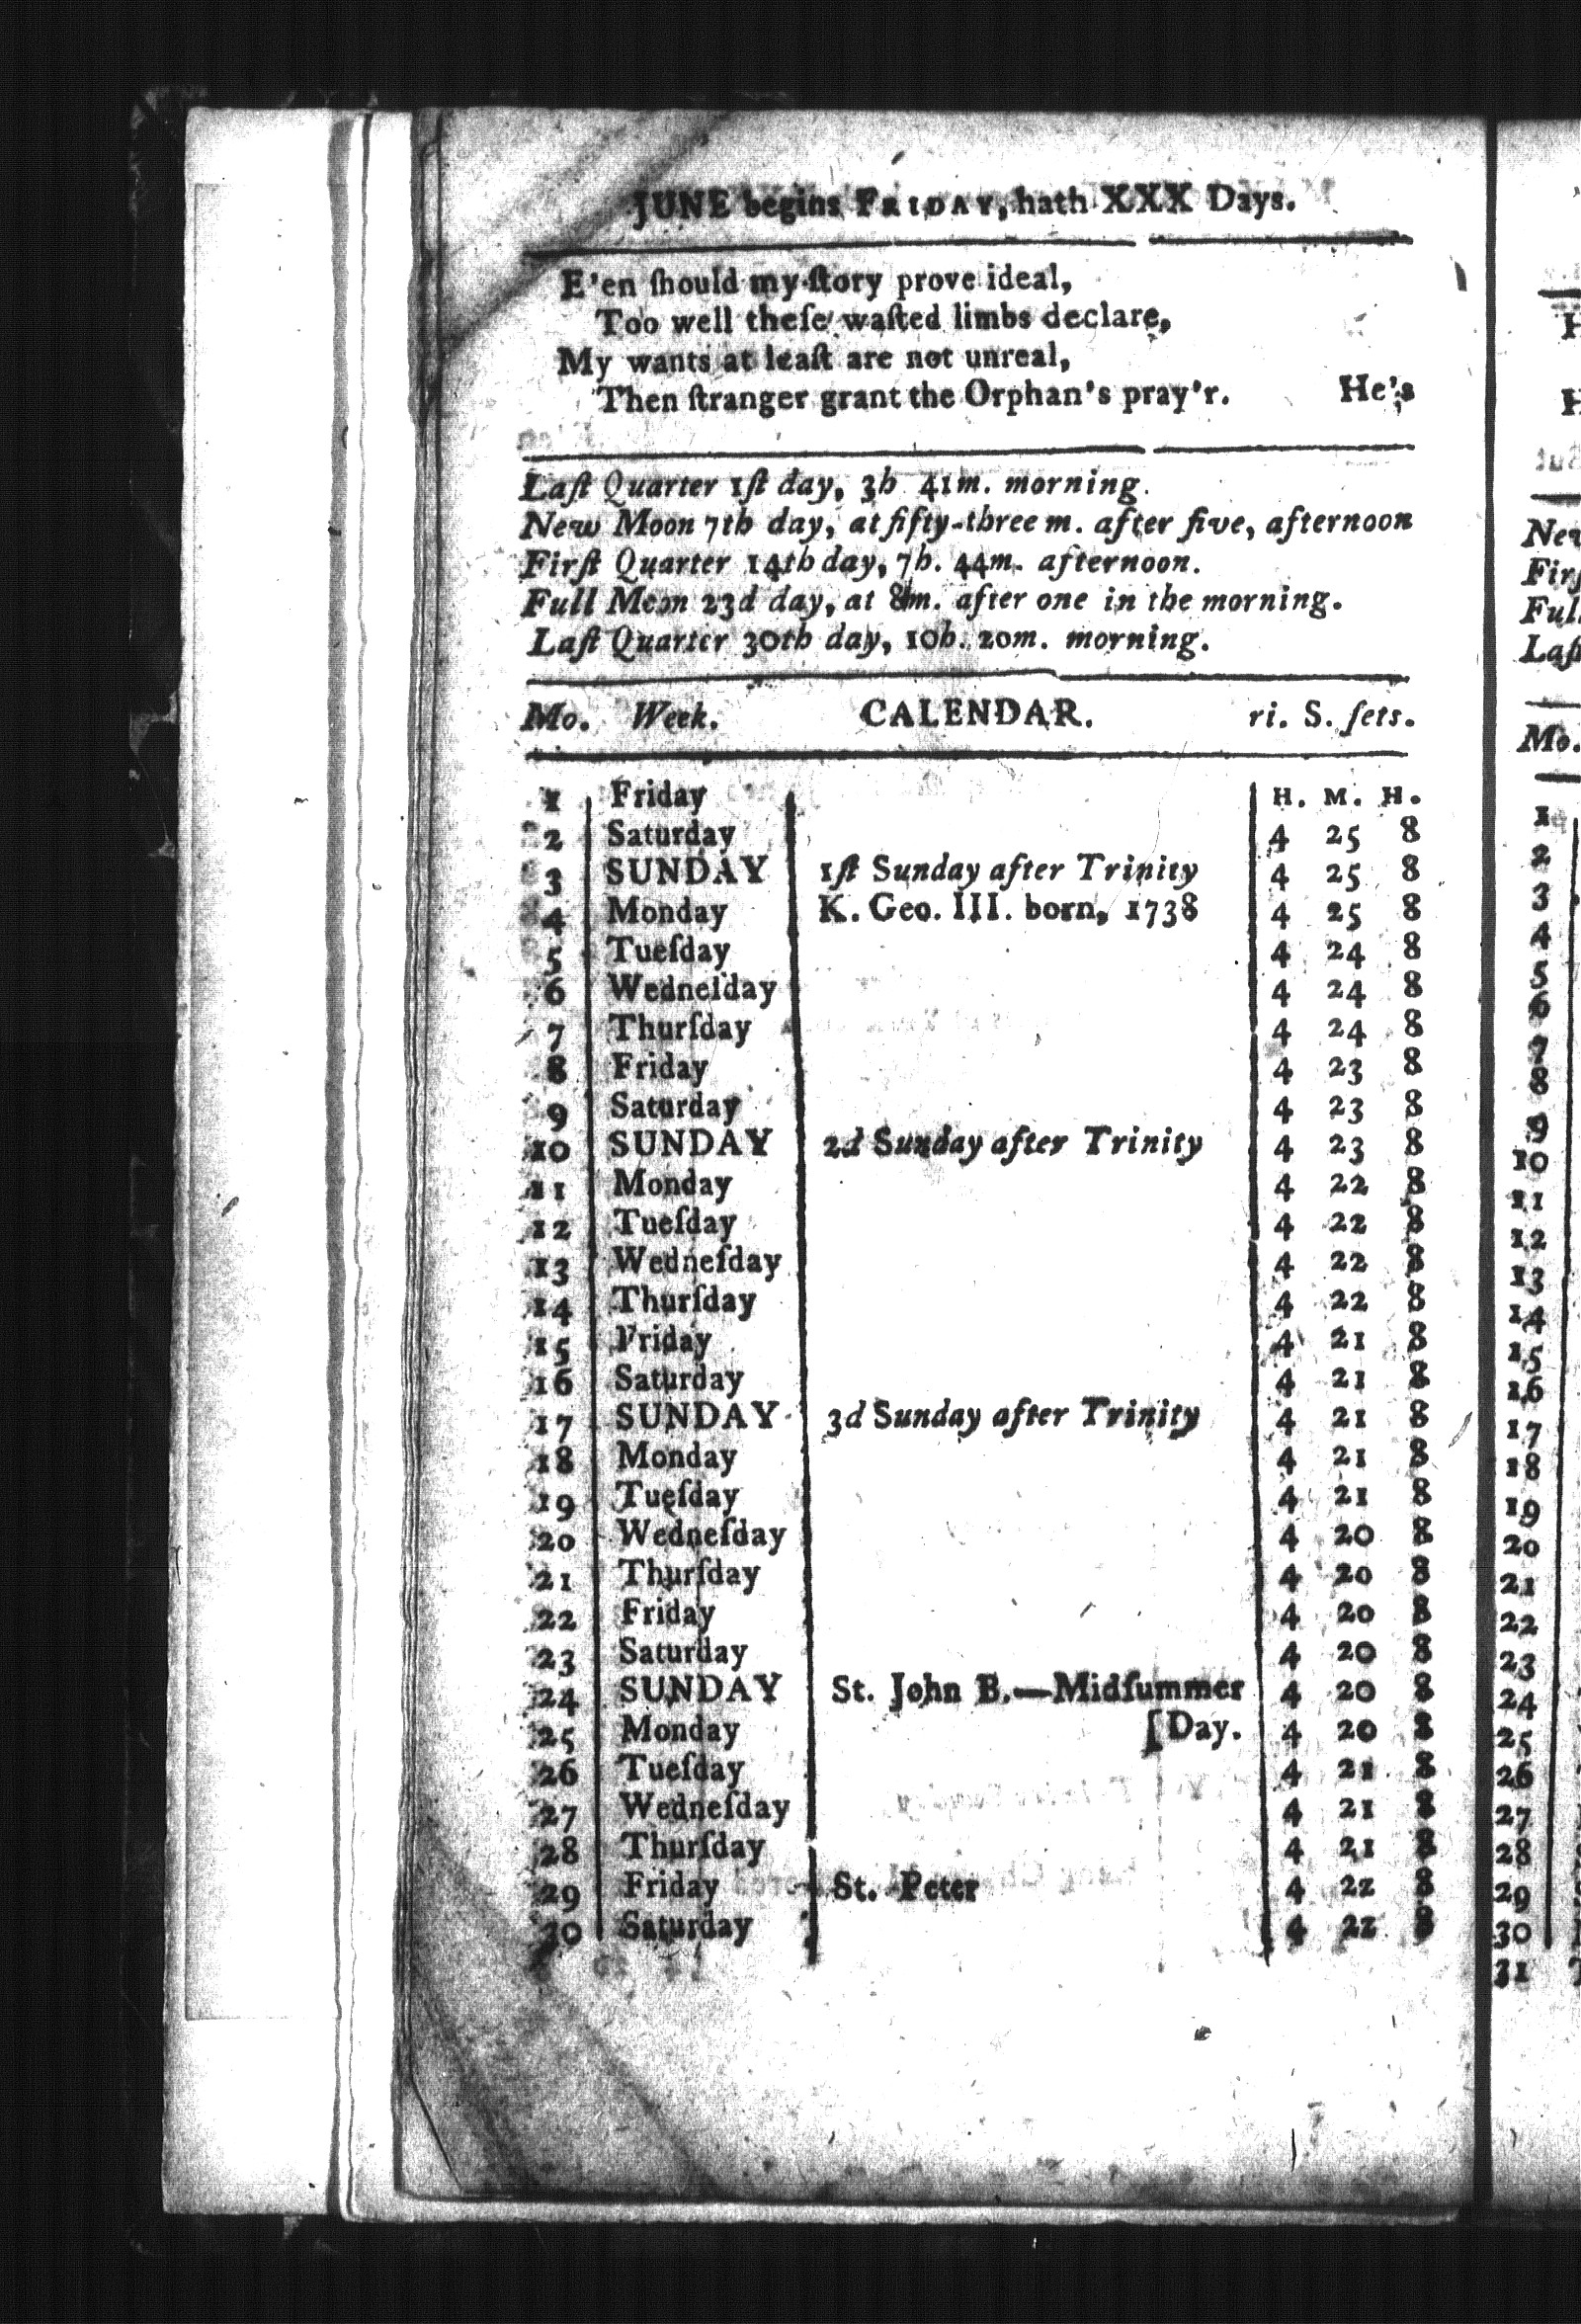 JUNE begins FRIDAY, hath XXX Days.
E'en ſhould my ſtory prove ideal,
Too well theſe waſted limbs declare,
My wants at leaſt are not unreal,
Then ſtranger grant the Orphan's pray'r. He's
Laſt Quarter 1ſt day, 3h 41m. morning.
New Moon 7th day, at fifty-three m. after five, afternoon
Firſt Quarter 14th day, 7h. 44m. afternoon.
Full Moon 23d day, at m. after one in the morning.
Laſt Quarter 30th day, 10h. 20m. morning.
Mo. Week. CALENDAR. ri. S. ſets.
1 Friday H. M. H.
2 Saturday 4 25 8
3 SUNDAY 1ſt Sunday after Trinity 4 25 8
4 Monday K. Geo. III. born, 1738 4 25 8
5 Tueſday 4 24 8
6 Wedneſday 4 24 8
7 Thurſday 4 24 8
8 Friday 4 23 8
9 Saturday 4 23 8
10 SUNDAY 2d Sunday after Trinity 4 23 8
11 Monday 4 22 8
12 Tueſday 4 22 8
13 Wedneſday 4 22 8
14 Thurſday 4 22 8
15 Friday 4 21 8
16 Saturday 4 21 8
17 SUNDAY 3d Sunday after Trinity 4 21 8
18 Monday 4 21 8
19 Tueſday 4 21 8
20 Wedneſday 4 20 8
21 Thurſday 4 20 8
22 Friday 4 20 8
23 Saturday 4 20 8
24 SUNDAY St. John B.—Midſummer 4 20 8
25 Monday [Day. 4 20 8
26 Tueſday 4 21 8
27 Wedneſday 4 21 8
28 Thurſday 4 21 8
29 Friday St. Peter 4 22 8
30 Saturday 4 22 8
Mo.
1
2
3
4
5
6
7
8
9
10
11
12
13
14
15
16
17
18
19
20
21
22
23
24
25
26
27
28
29
30
31